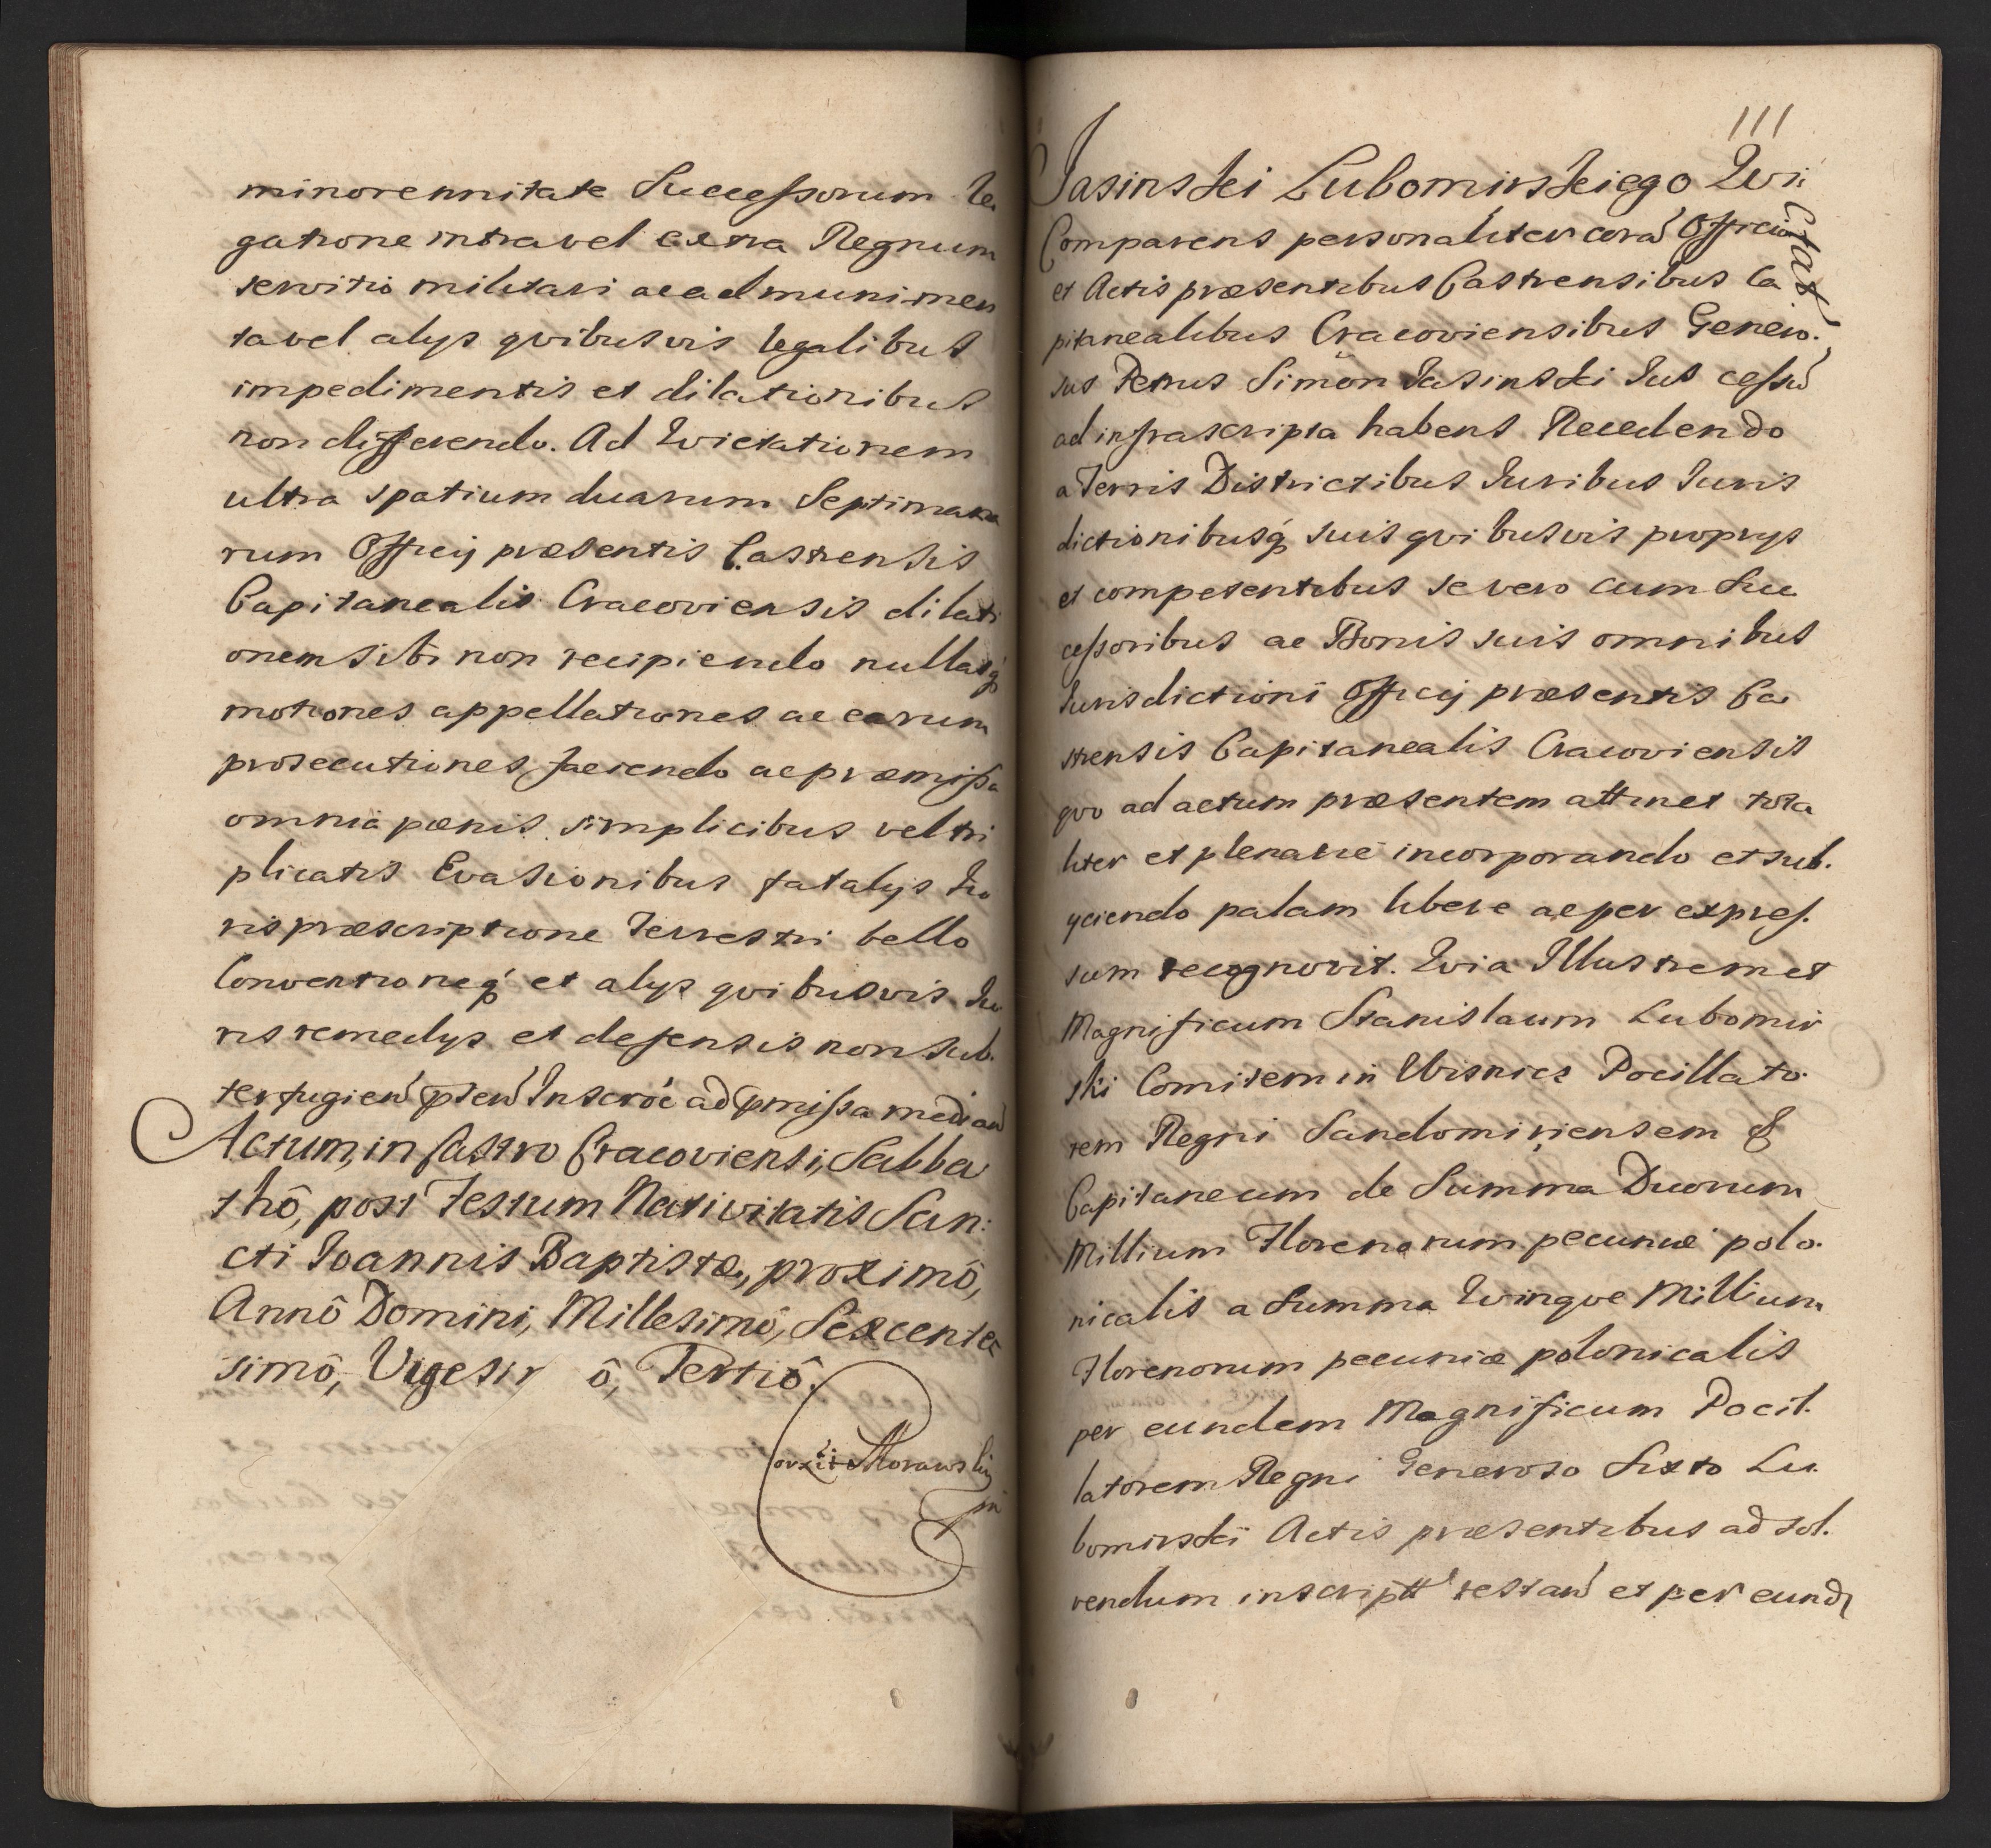 minorennitate Successorum le
gatione intra vel extra Regnum
servitio militari ac ad munimen
ta vel alys qvibusvis legalibus
impedimentis et dilationibus
non differendo. Ad Qvietationem
ultra spatium duarum Septimana
rum Officij præsentis Castrensis
Capitanealis Cracoviensis dilati
onem sibi non recipiendo nullasq́
motiones appellationes ac earum
prosecutiones faciendo ac præmissa
omnia pœnis simplicibus vel tri
plicatis Evasionibus fatalijs Iu
ris præscriptione Terrestri bello
Conventioneq́ et alys qvibusvis Iu
ris remedys et defensis non sub.
terfugien pten Inscróe ad pmissa median
Actum, in Castro Cracoviensi, Sabba
thô, post Festum Nativitatis San:
cti Ioannis Baptistæ, proximô,
Annô Domini, Millesimô, Sexcente
simô, Vigesi ô, Tertiô.
Morawski
111
Jasinskei Lubomirskeiego Qvi
etat
Comparens personaliter corã Officio
et Actis præsentibus Castrensibus Ca
pitanealibus Cracoviensibus Genero.
sus Petrus Simon Jasinskei Ius cessũ
ad infrascripta habens Recedendo
a Terris Districtibus Iuribus Iuris
dictionibusq́ suis qvibusvis proprys
et competentibus se vero cum Suc
cessoribus ac Bonis suis omnibus
Iurisdictioni Officij præsentis Ca
strensis Capitanealis Cracoviensis
qvo ad actum præsentem attinet tota
liter et plenarie incorporando et sub.
yciendo palam libere ac per expres.
sum recognovit. Qvia Illustrem et
Magnificum Stanislaum Lubomir
ski Comitem in Wisnicz Pocillato.
rem Regni Sandomiriensem &
Capitaneum de Summa Duorum
Millium Florenorum pecuniæ polo.
nicalis a Summa Qvinqve Millium
Florenorum pecuniæ polonicalis
per eundem Magnificum Pocil.
latorem Regni Generoso Sixto Lu.
bomirskei Actis præsentibus ad sol.
vendum inscriptt restan et per eund